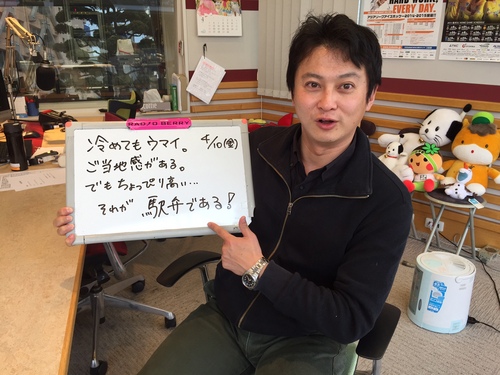 RADIO BERRY
4/10(金)
冷めてもウマイ。
ご当地感がある。
でもちょっぴり高い…
それが 駅弁である!
HARD WORK,
EVERY DAY.